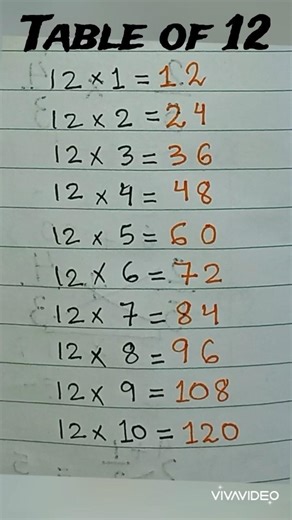 TABLE OF 12
12 × 1 = 12
12 × 2 = 24
12 × 3 = 36
12 × 4 = 48
12 × 5 = 60
12 × 6 = 72
12 × 7 = 84
12 × 8 = 96
12 × 9 = 108
12 × 10 = 120
VIVAVIDEO